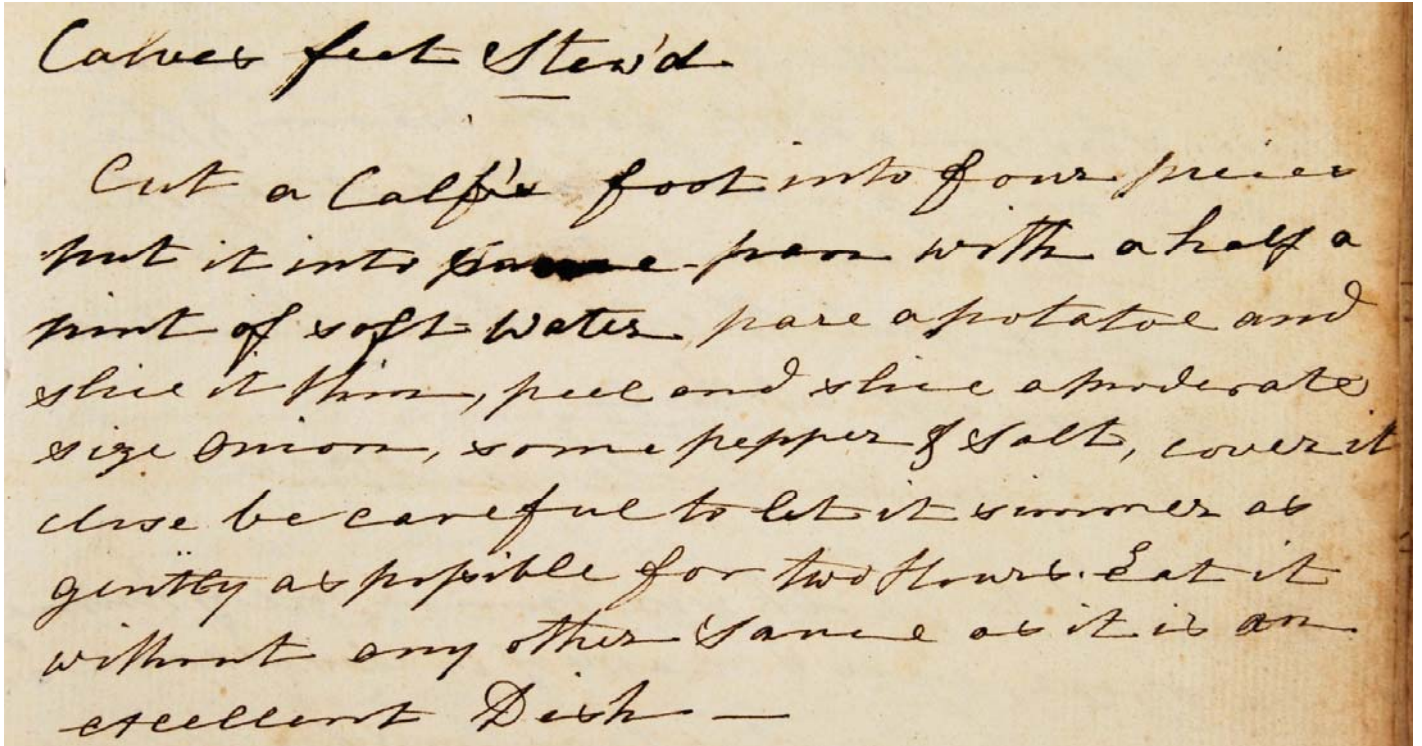 Calves feet Stew'd
Cut a Calf's foot into four pieces
put it into sauce-pan with a half a
pint of soft Water pare a potatoe and
slice it thin, peel and slice a moderate
size Onion, some pepper & Salt, cover it
close be careful to let it simmer as
gently as possible for two Hours. Eat it
without any other Sauce as it is an
excellent Dish —